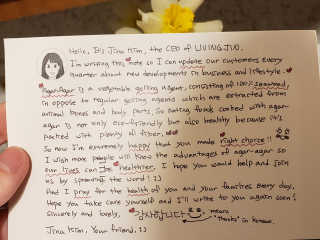 Hello, It's Jina Hsim, the CEO of LIVING JIN.
I'm writing this note so I can update our customers every
quarter about new developments in business and lifestyle.
Agar-Agar is a vegetable gelling agent, consisting of 100% seaweed,
in oppose to regular gelling agents which are extracted from
animal bones and body parts. So eating foods cooked with agar-
agar is not only eco-friendly but also healthy because it's
packed with plenty of fiber.
So now I'm extremely happy that you made right choice!!
I wish more people will know the advantages of agar-agar so
our lives can be healthier. I hope you would help and join
us by spreading the word! :)
And I pray for the health of you and your families every day.
Hope you take care yourself and I'll write to you again soon!
Sincerely and lovely, 감사합니다 means
"Thanks" in Korean.
Jina Hsim, Your friend. :)